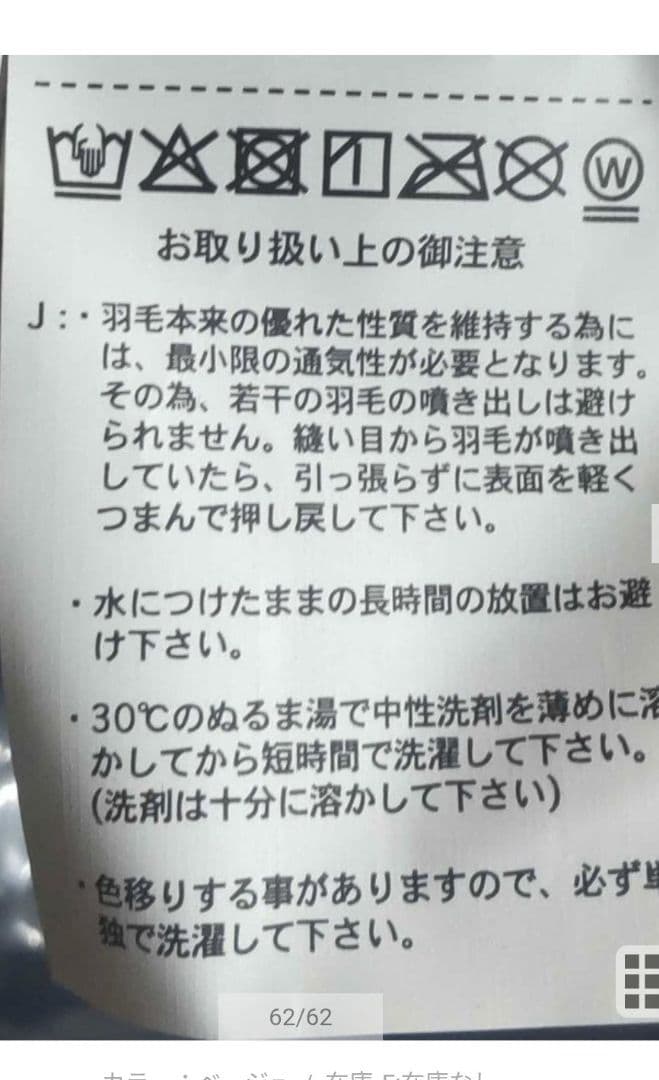 W
お取り扱い上の御注意
J:・羽毛本来の優れた性質を維持する為に
は、最小限の通気性が必要となります。
その為、若干の羽毛の噴き出しは避け
られません。縫い目から羽毛が噴き出
していたら、引っ張らずに表面を軽く
つまんで押し戻して下さい。
・水につけたままの長時間の放置はお避
け下さい。
・30℃のぬるま湯で中性洗剤を薄めに溶
かしてから短時間で洗濯して下さい。
(洗剤は十分に溶かして下さい)
・色移りする事がありますので、必ず単
独で洗濯して下さい。
62/62